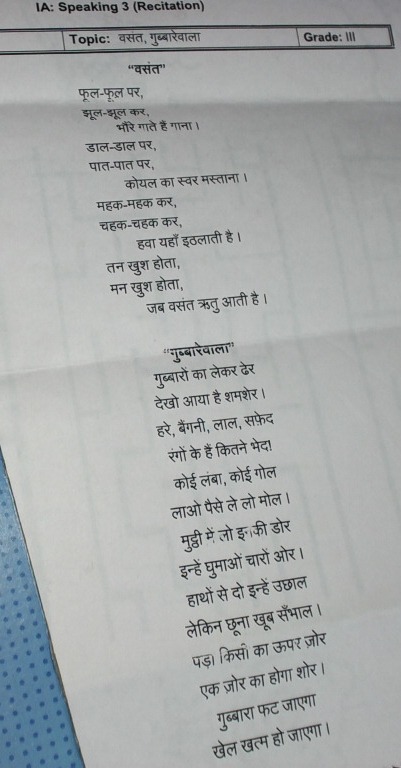 IA: Speaking 3 (Recitation)
Topic: वसंत, गुब्बारेवाला Grade: III
“वसंत”
फूल-फूल पर,
झूल-झूल कर,
भौंरे गाते हैं गाना।
डाल-डाल पर,
पात-पात पर,
कोयल का स्वर मस्ताना।
महक-महक कर,
चहक-चहक कर,
हवा यहाँ इठलाती है।
तन खुश होता,
मन खुश होता,
जब वसंत ऋतु आती है।
“गुब्बारेवाला”
गुब्बारों का लेकर ढेर
देखो आया है शमशेर।
हरे, बैंगनी, लाल, सफ़ेद
रंगों के हैं कितने भेद।
कोई लंबा, कोई गोल
लाओ पैसे ले लो मोल।
मुट्ठी में लो इनकी डोर
इन्हें घुमाओं चारों ओर।
हाथों से दो इन्हें उछाल
लेकिन छूना खूब सँभाल।
पड़ा किसी का ऊपर ज़ोर
एक ज़ोर का होगा शोर।
गुब्बारा फट जाएगा
खेल खत्म हो जाएगा।